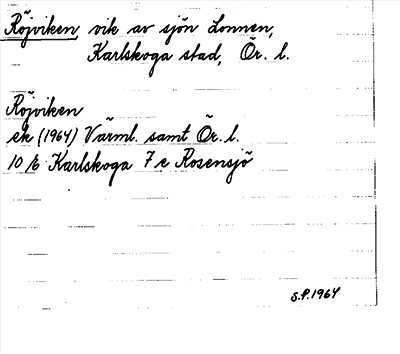 Röjviken, vik av sjön Lonnen,
Karlskoga stad, Ör. l.
Röjviken
ek (1964) Värml. samt Ör. l.
10 b Karlskoga 7 e Rosensjö
S.P. 1964